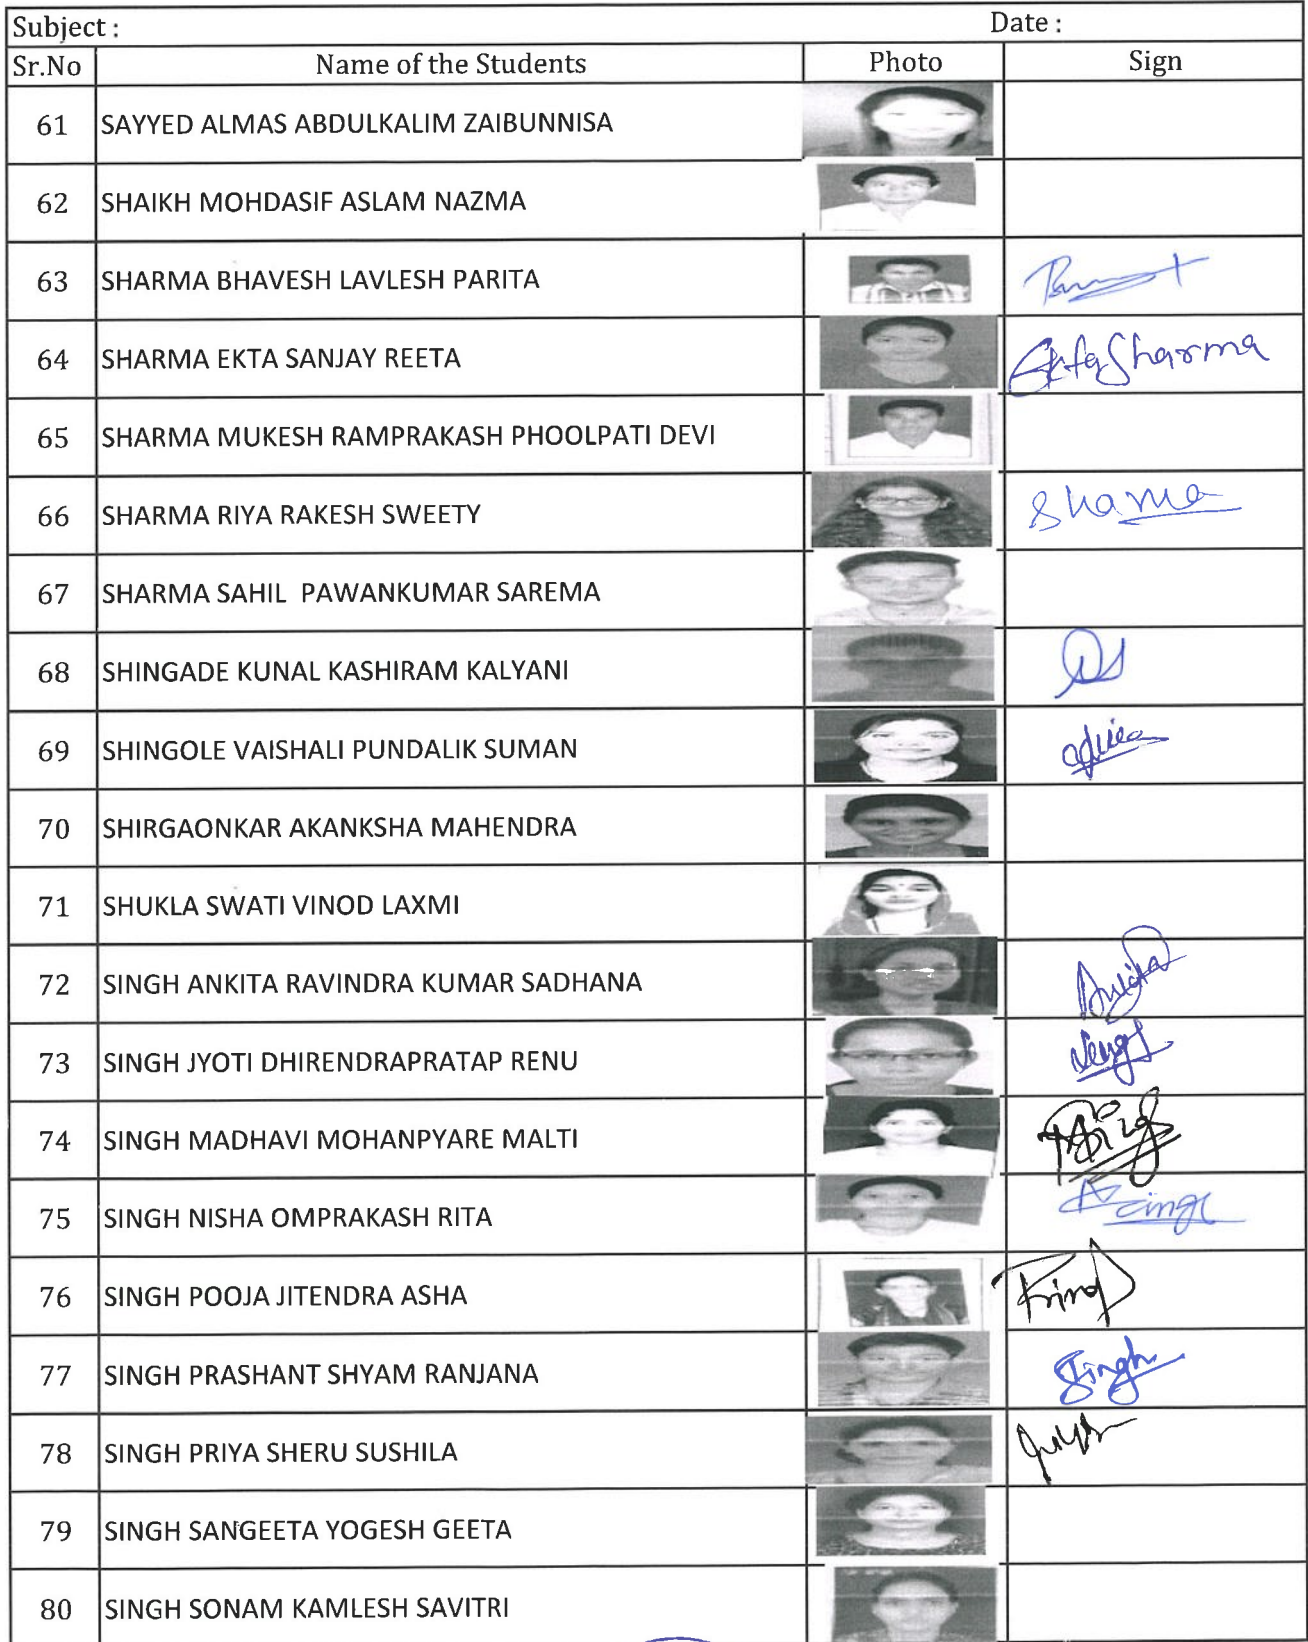 Subject : Date :
Sr.No Name of the Students Photo Sign
61 SAYYED ALMAS ABDULKALIM ZAIBUNNISA
62 SHAIKH MOHDASIF ASLAM NAZMA
63 SHARMA BHAVESH LAVLESH PARITA
64 SHARMA EKTA SANJAY REETA Ekta Sharma
65 SHARMA MUKESH RAMPRAKASH PHOOLPATI DEVI
66 SHARMA RIYA RAKESH SWEETY Sharma
67 SHARMA SAHIL PAWANKUMAR SAREMA
68 SHINGADE KUNAL KASHIRAM KALYANI
69 SHINGOLE VAISHALI PUNDALIK SUMAN
70 SHIRGAONKAR AKANKSHA MAHENDRA
71 SHUKLA SWATI VINOD LAXMI
72 SINGH ANKITA RAVINDRA KUMAR SADHANA
73 SINGH JYOTI DHIRENDRAPRATAP RENU
74 SINGH MADHAVI MOHANPYARE MALTI
75 SINGH NISHA OMPRAKASH RITA
76 SINGH POOJA JITENDRA ASHA
77 SINGH PRASHANT SHYAM RANJANA Singh
78 SINGH PRIYA SHERU SUSHILA
79 SINGH SANGEETA YOGESH GEETA
80 SINGH SONAM KAMLESH SAVITRI